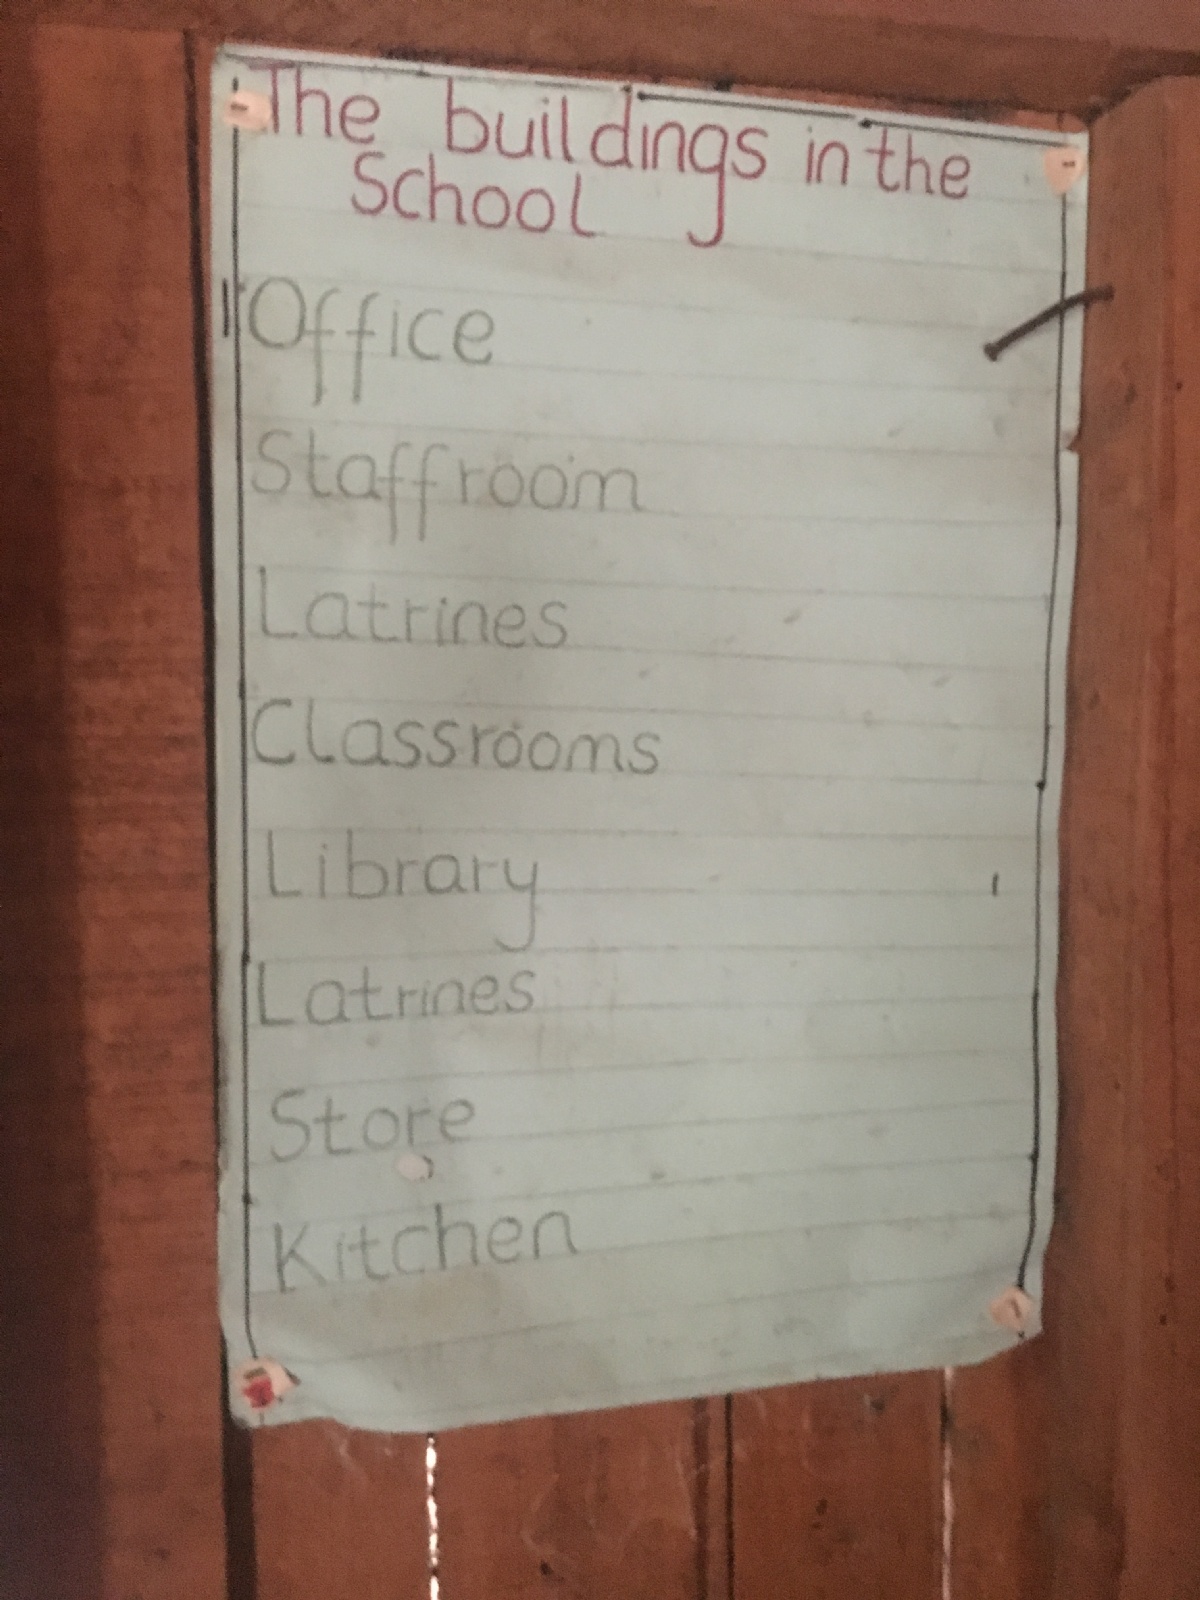 The buildings in the
School
Office
Staffroom
Latrines
Classrooms
Library
Latrines
Store
Kitchen